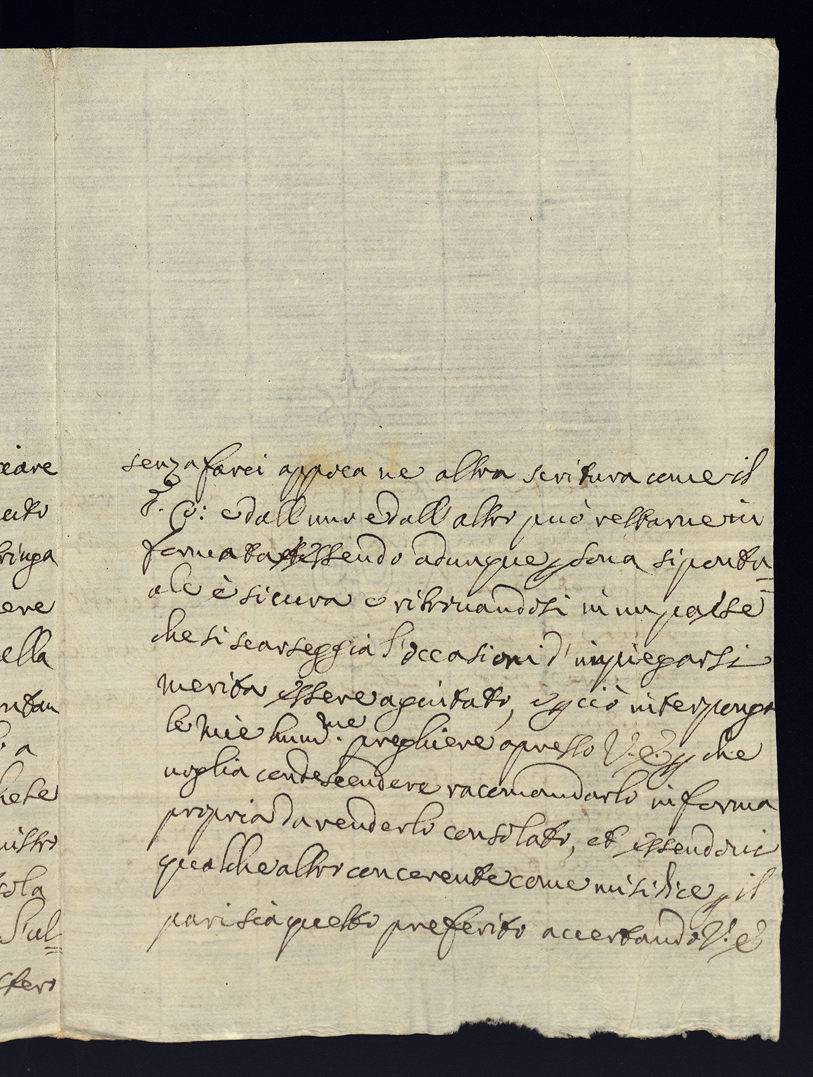 senza farci appoca ne altra scritura come il
P. P: e dall uno e dall altro può restarne in
formata essendo adunque psona si ponta=
ale è sicura e ritrovandosi in un paese
che si scarseggia l'occasioni d'inpiegarsi
merita essere agiutato, e p ciò interpongo
le mie hum.me preghiere apresso V. E. p che
voglia condescendere racomandarlo in forma
propria da renderlo consolato, et essendovi
qualche altro concerente come mi si dice p il
pari sia questo preferito accertando V. E.
eare
ere
ella
a
ola